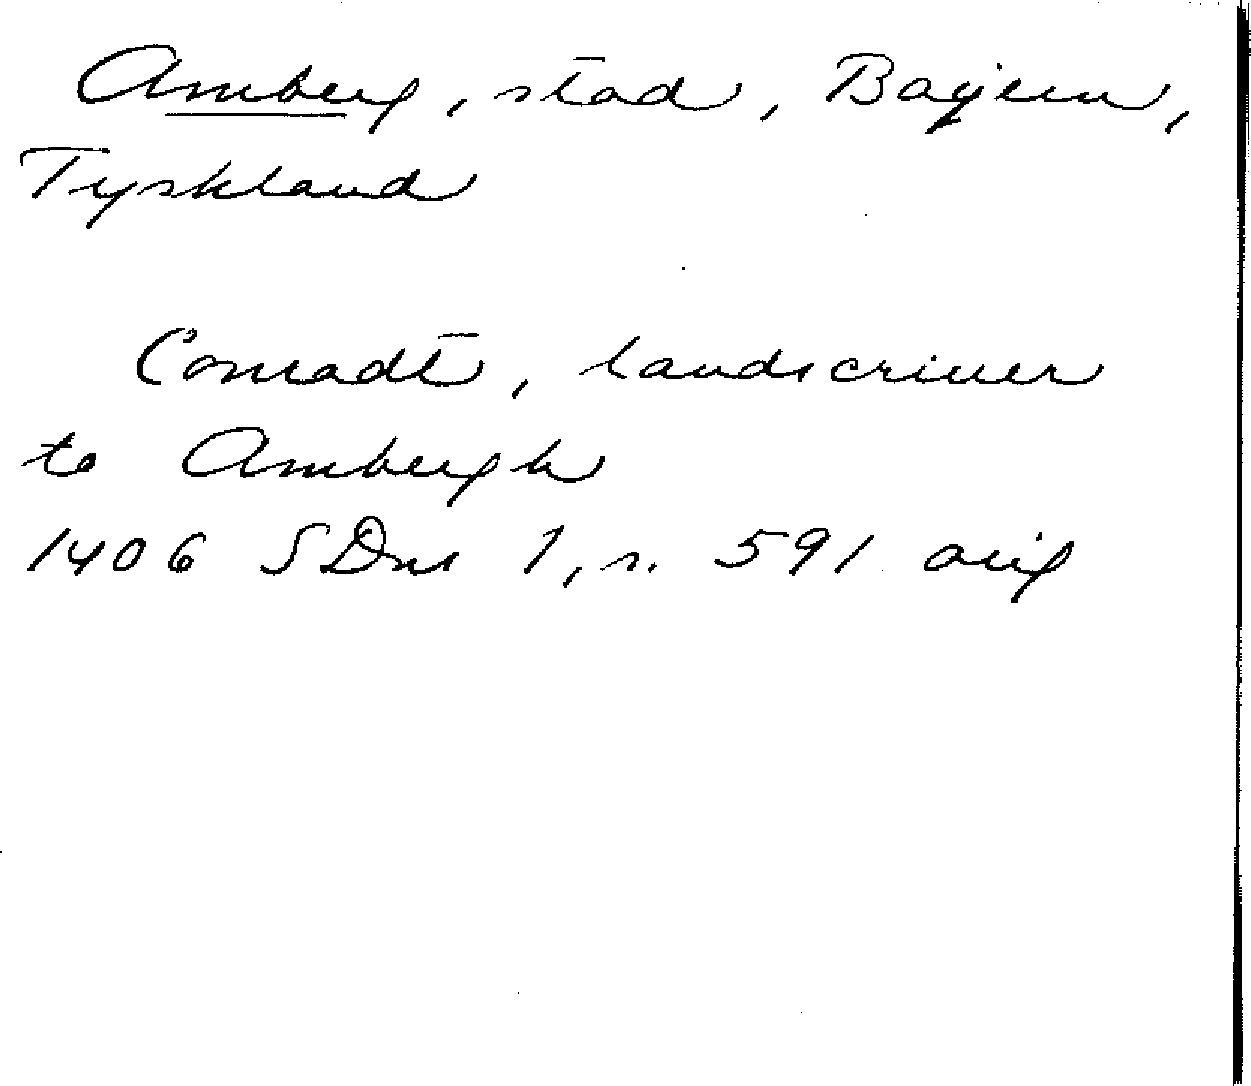 Amberg, stad, Bayern,
Tyskland
Conradt, landscriuer
to Ambergh
1406 SDns 1, s. 591 orig